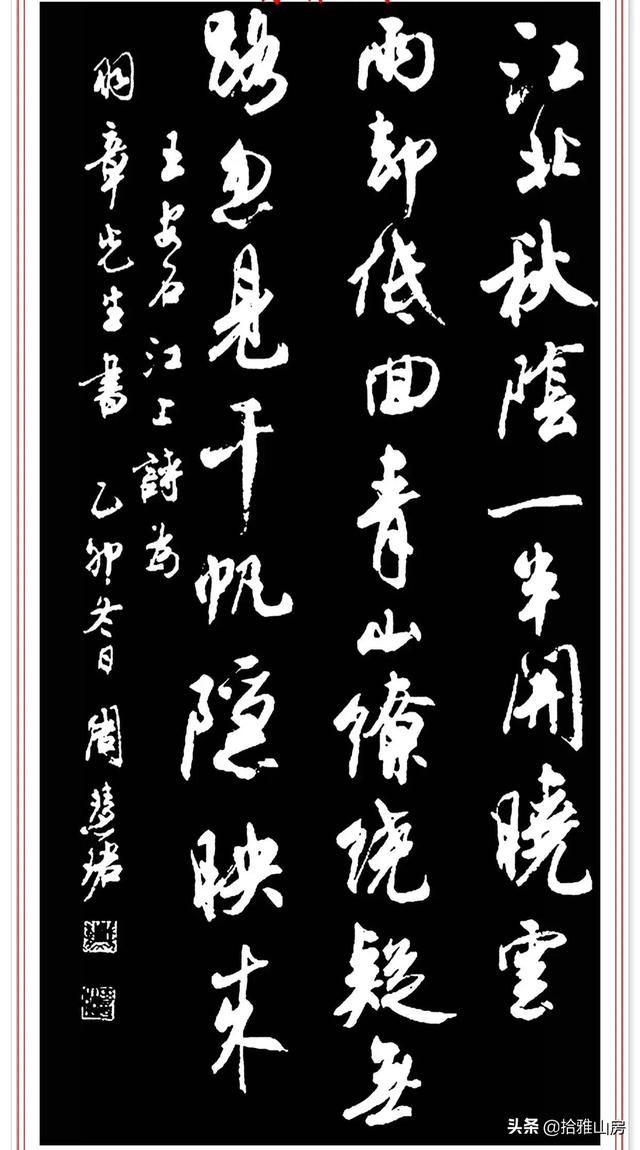 江北秋陰一半開曉雲
雨却低回青山繚繞疑無
路忽見千帆隱映来
王安石江上詩為
章先生書 乙卯冬日 周慧珺
头条 @拾雅山房